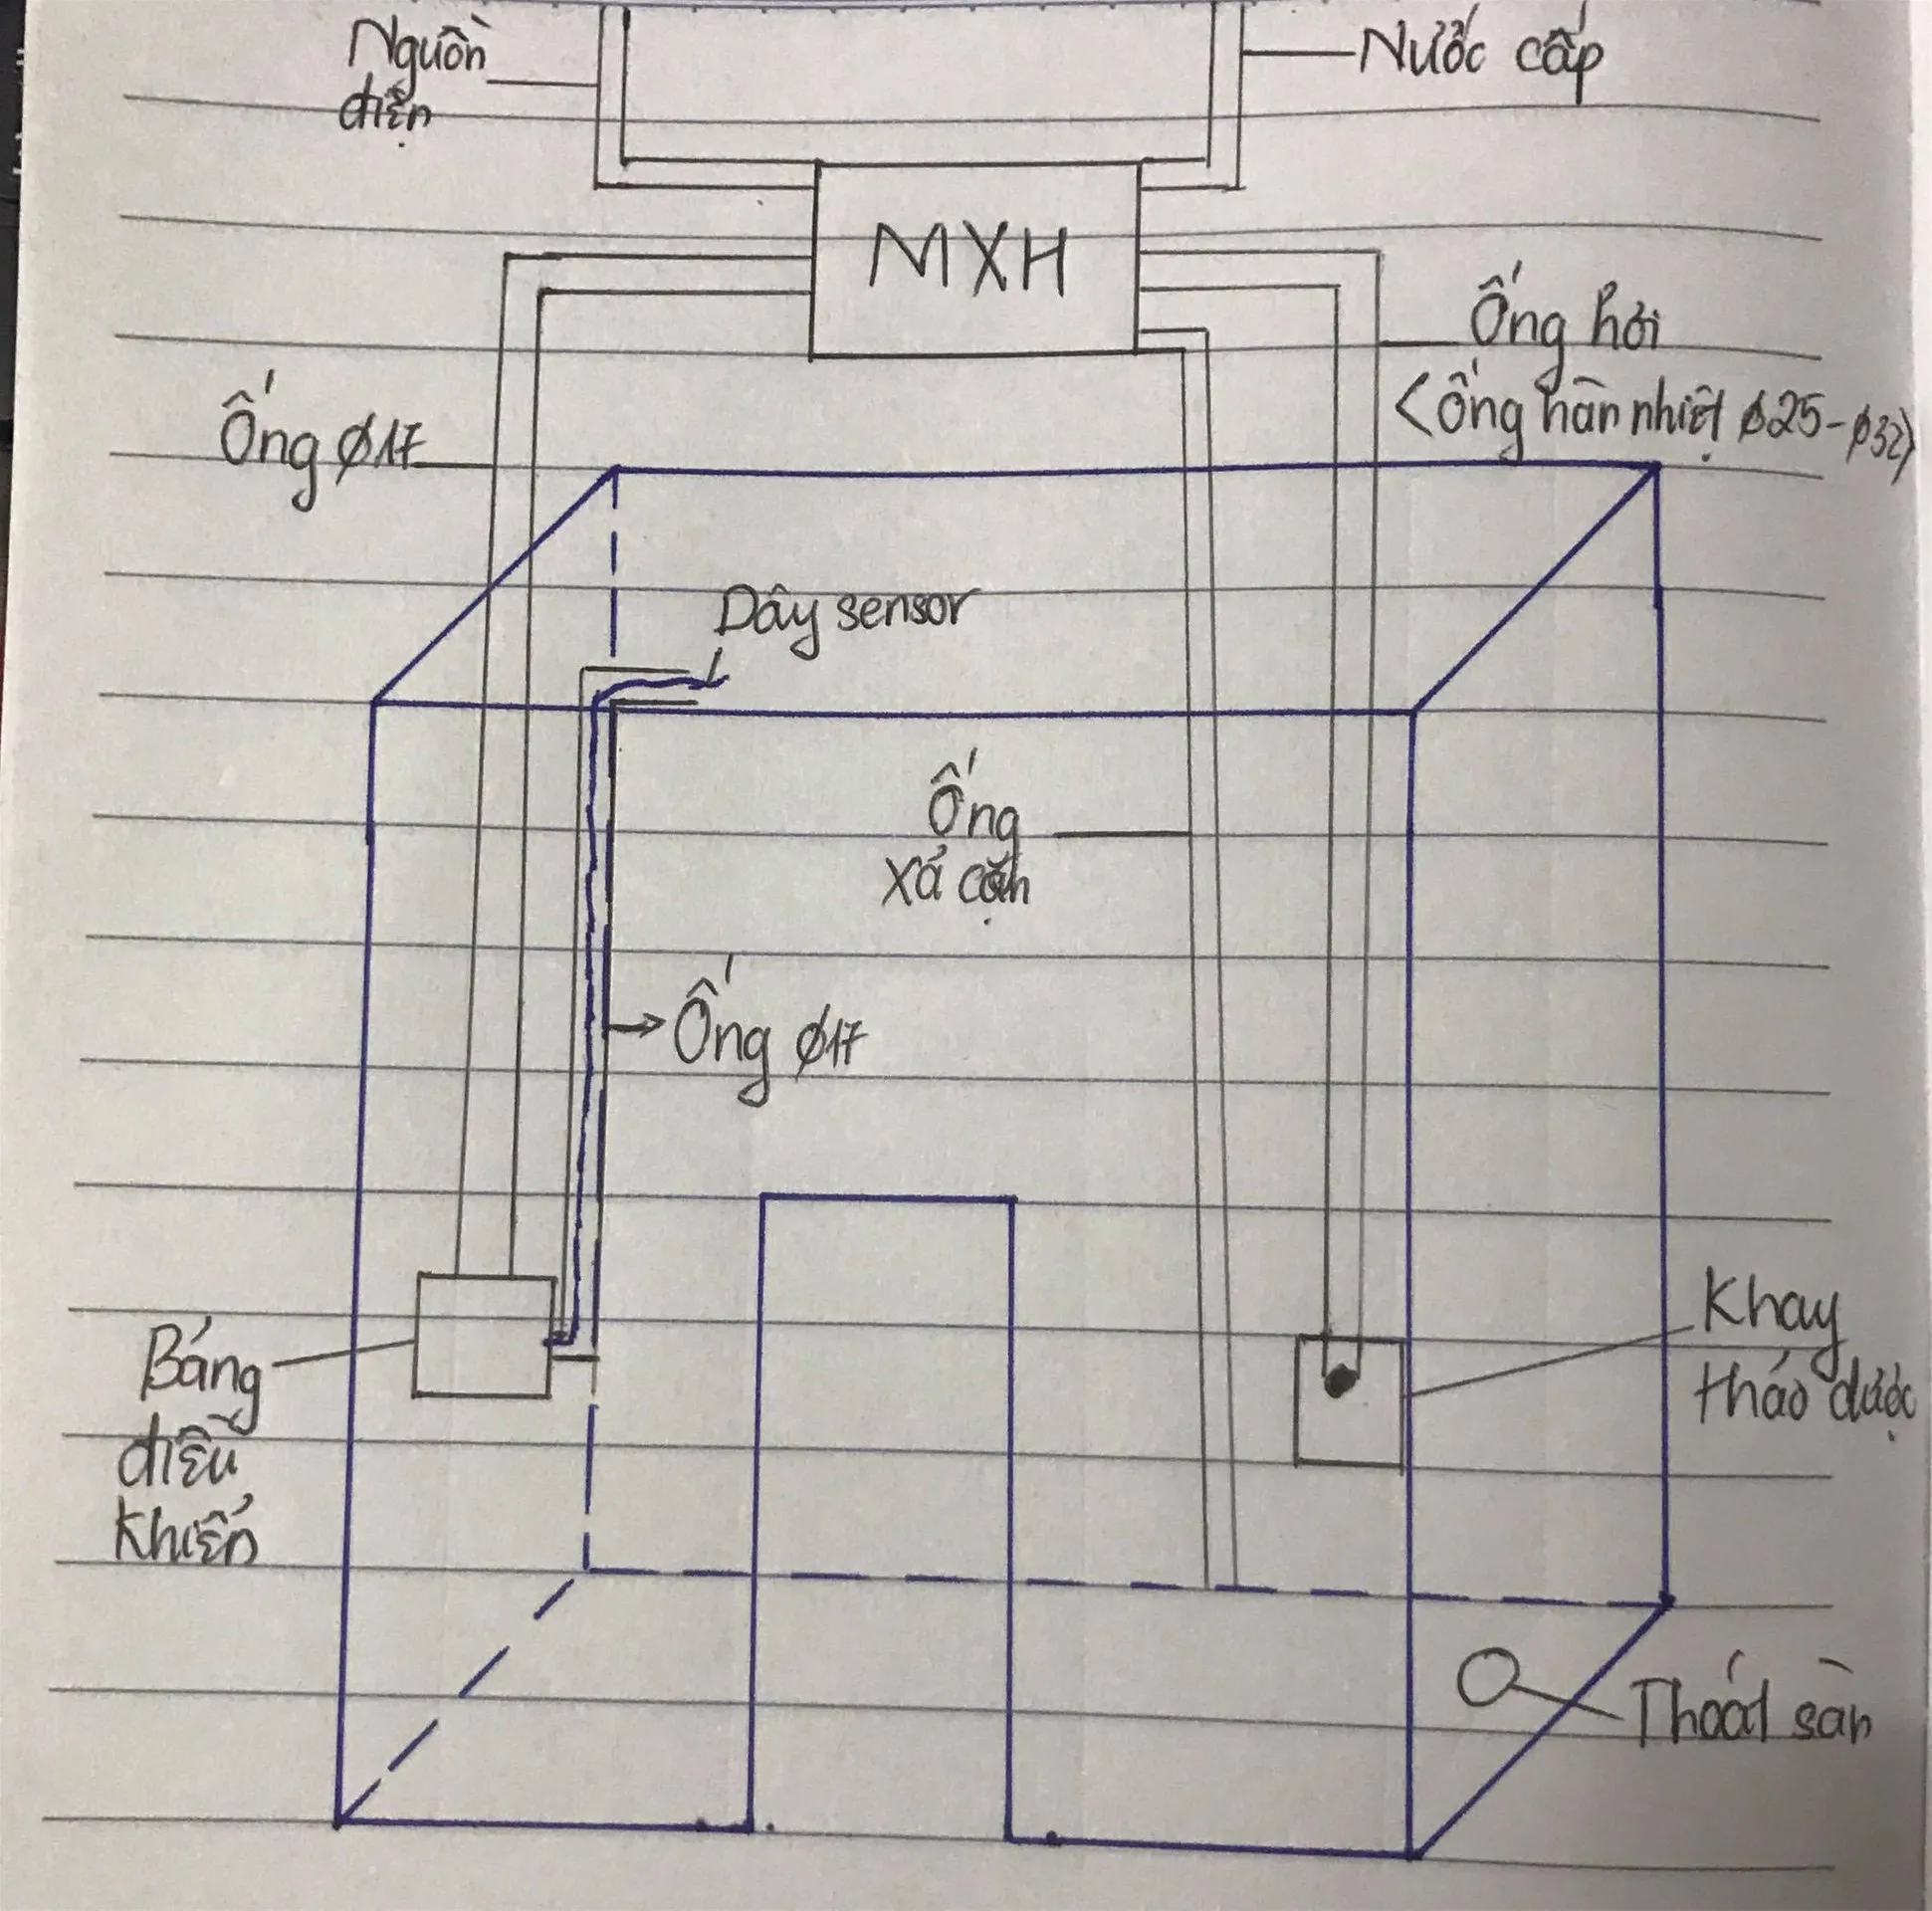 Nguồn
điện
Nước cấp
MXH
Ống hơi
<ống hàn nhiệt ø25-ø32>
Ống ø17
Dây sensor
Ống
xả cặn
Ống ø17
Bảng
điều
khiển
Khay
thảo dược
Thoát sàn